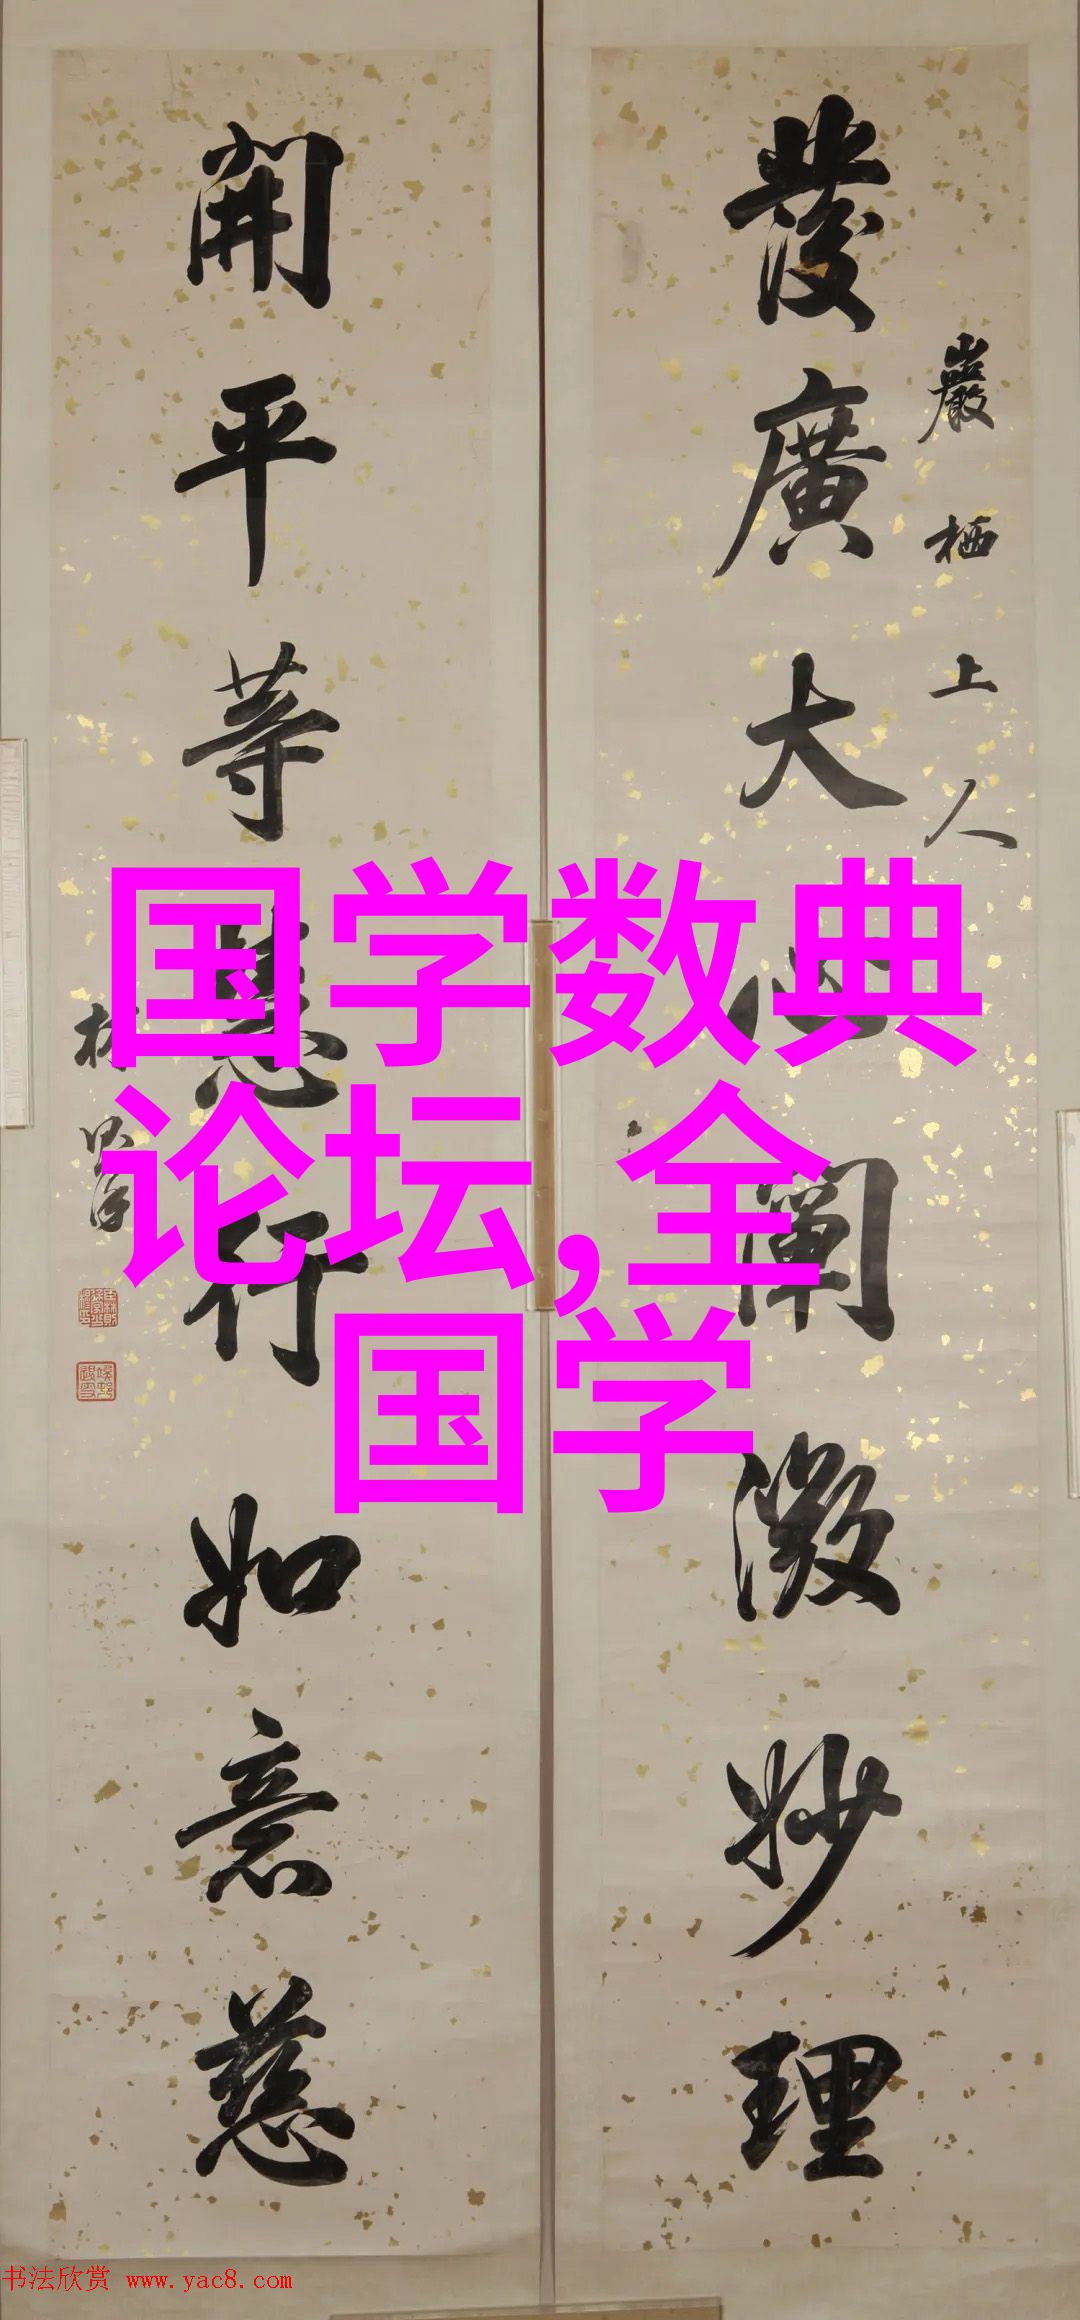 發廣大心闡微妙理
巖栖上人
開平等慧行如意慈
林
国学数典
论坛,全
国学
书法欣赏 www.yac8.com